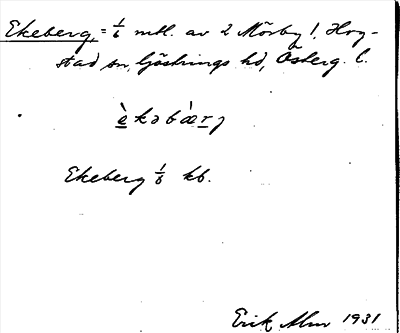 Ekeberg, = 1/6 mtl. av 2 Mörby!, Hog-
stad sn, Göstrings hd, Österg. l.
Ekeberg 1/6 kb.
Erik Alm 1931